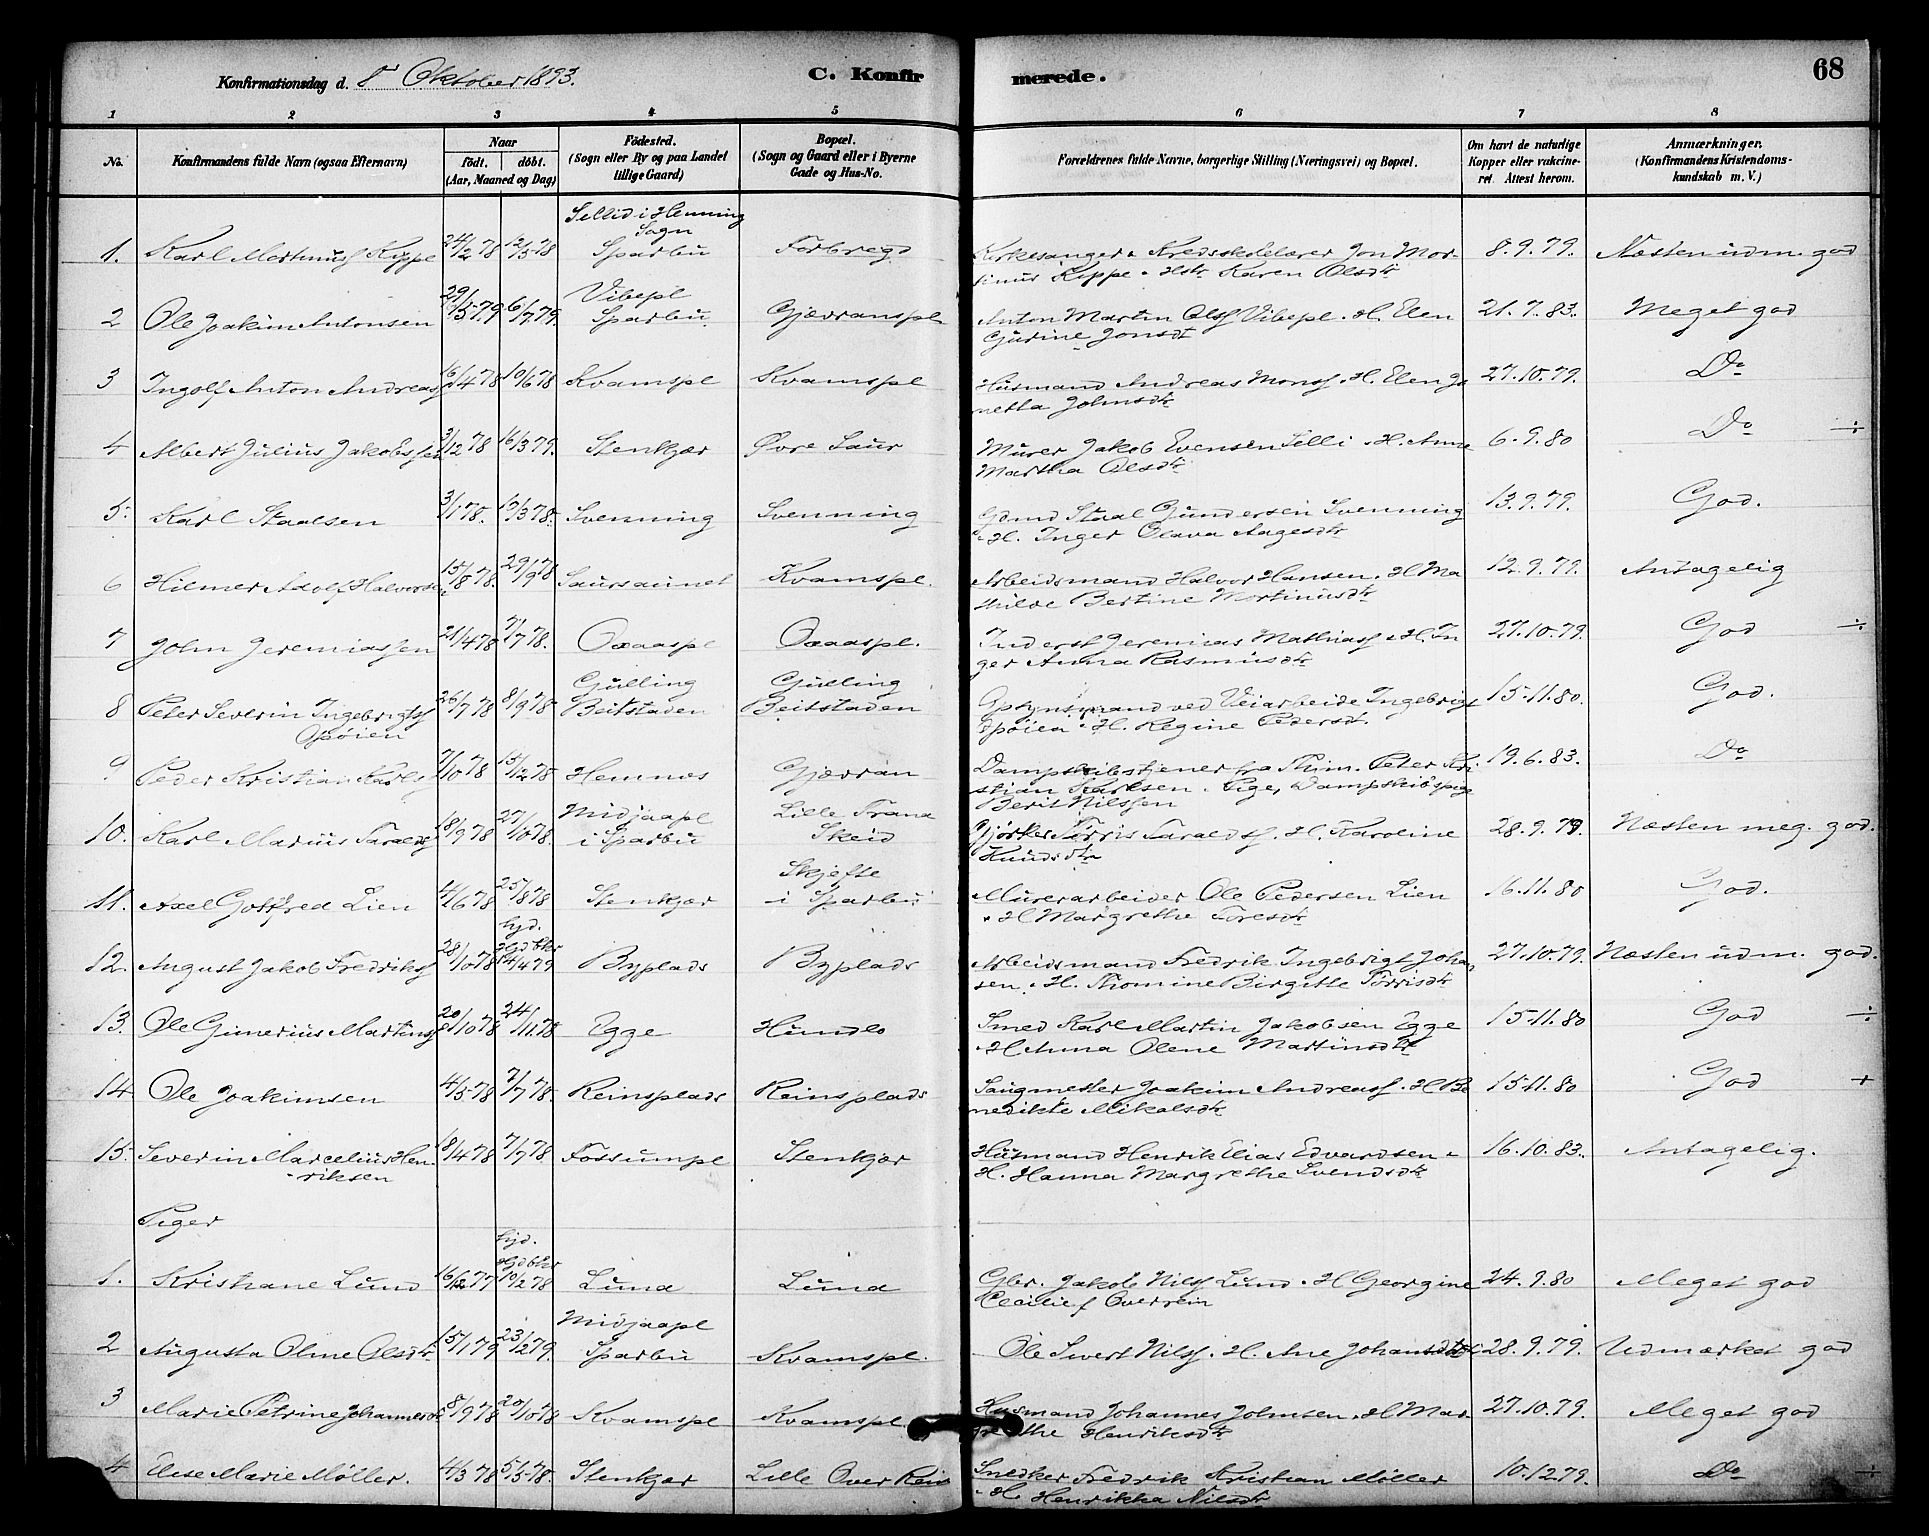 Konfirmationsdag d. 8 Oktober 1893.
C. Konfirmerede.
68
1 2 3 4 5 6 7 8
No. Konfirmandens fulde Navn (ogsaa Efternavn) Naar født. døbt. (Aar, Maaned og Dag) Fødested. (Sogn eller By og paa Landet tillige Gaard) Bopæl. (Sogn og Gaard eller i Byerne Gade og Hus-No. Forældrenes fulde Navne, borgerlige Stilling (Næringsvei) og Bopæl. Om havt de naturlige Kopper eller vakcineret. Attest herom. Anmærkninger. (Konfirmandens Kristendomskundskab m. V.)
1. Karl Martinus Kippe 24/2 78 12/5 78 i Henning Sogn Sparbu Forbregd Kirkesanger & Kredsskolelærer Jon Mortinus Kippe & Hstr Karen Olsdtr 8.9.79. Næsten udm. god
2 Ole Joakim Antonsen 29/5 79 6/7 79. Vibepl Sparbu Gjævranspl Anton Martin Olss Vibepl. H. Elen Gurine Jonsdt 21.7.83. Meget god
3 Ingolf Anton Andreass 16/4 78 10/6 78 Kvamspl Kvamspl Husmand Andreas Monss. H. Elen Jonetta Johnsdtr 27.10.79. Do
4 Albert Julius Jakobssen 3/12 78 16/3 79. Stenkjær Øvre Saur Murer Jakob Evensen Selli. H. Anne Martha Olsdtr 6.9.80 Do ÷
5. Karl Staalsen 3/1 78. 10/3 78. Svenning Svenning Gdmd Staal Gundersen Svenning & H. Inger Olava Aagesdtr 13.9.79. God.
6 Hilmer Adolf Halvorsen 15/8 78. 29/9 78 Saursaunet Kvamspl. Arbeidsmand Halvor Hansen. H Mathilde Bertine Mortinusdtr 12.9.79. Antagelig
7 John Jeremiassen 21/4 78 7/7 78. Oxaaspl Oxaaspl. Inderst Jeremias Mathiass & H. Inger Anna Rasmusdtr 27.10.79. God ÷
8 Peter Severin Ingebrigts Opøien 26/7 78 8/9 78. Gulling Beitstaden Gulling Beitstaden Opsynsmand ved Veiarbeide Ingebrigt Opøien & H. Regine Pedersdt. 15.11.80. God.
9 Peder Kristian Karls 7/10 78 15/12 78 Hemnes Gjævran Dampskibstjener fra Thjm. Peter Kristian Karlsen. Pige, Dampskibspige Berit Nilssen 19.6.83. Do
10. Karl Marius Taralds 18/9 78 27/10 78. Midjaapl i Sparbu Lille Trana Skeid Gjørtler Tørris Taraldss. H. Karoline Knudsdtr 28.9.79 Næsten meg. god.
11. Axel Gotfred Lien 4/6 78 25/8 78 Stenkjær Skjefte i Sparbu Murerarbeider Ole Pedersen Lien & H Margrethe Toresdtr 16.11.80 God.
12. August Jakob Fredriks 28/10 78 hjd. 14/4 79 Byplads Byplads Arbeidsmand Fredrik Ingebrigt Johansen. H. Thomine Birgitte Tørrisdtr 27.10.79. Næsten udm. god.
13. Ole Gunerius Martins 20/10 78 24/11 78 Egge Humlo Smed Karl Martin Jakobsen Egge H Anna Olene Martinsdtr 15.11.80 God ÷
14 Ole Joakimsen 4/5 78 7/7 78. Reinsplads Reinsplads Saugmester Joakim Andreass. H Benedikte Mikalsdtr 15.11.80 God +
15. Severin Marcelius Henriksen 18/4 78 7/7 78 Fossumpl Stenkjær Husmand Henrik Elias Edvardsen & H. Hanna Margrethe Svendsdtr 16.10.83. Antagelig.
Piger
1. Kristiane Lund 16/12 77 hjd. 10/2 78 Lund Lund Gbr. Jakob Nilss Lund. H Georgine Cecilie f Overrein 24.9.80 Meget god
2 Augusta Oline Olsdtr 15/1 79 23/2 79. Midjaapl Sparbu Kvamspl. Ole Sivert Nilss. H. Ane Johansdtr 28.9.79. Udmærket god
3 Marie Petrine Johannesdt 8/9 78 20/10 78 Kvamspl Kvamspl. Husmand Johannes Johnsen. H Margrethe Henriksdtr 27.10.79. Meget god
4 Elise Marie Møller. 4/3 78 5/5 78. Stenkjær Lille Over Rein Snedker Fredrik Kristian Møller & H. Henrikka Nilsdtr 10.12.79. Do ÷